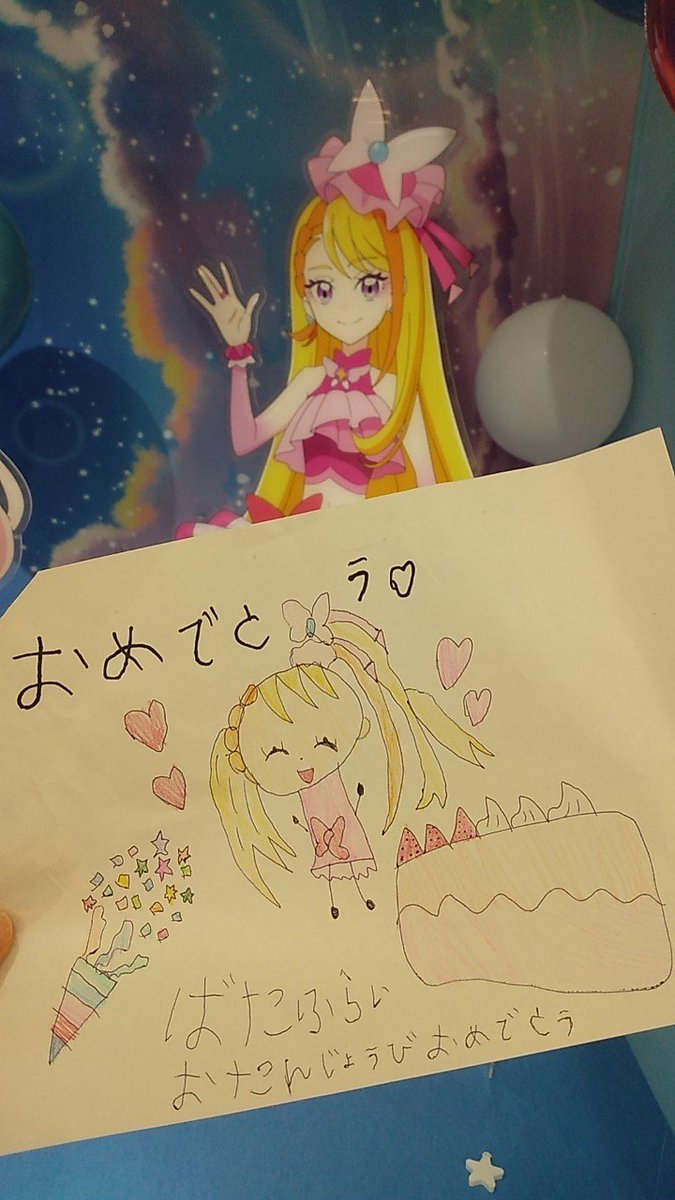 おめでとう♡
ばたふらい
おたんじょうびおめでとう